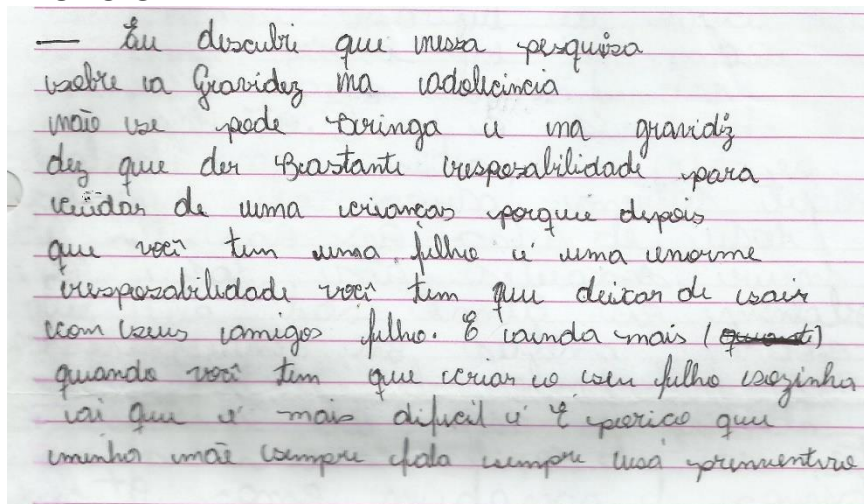 — Eu descubri que messa pesquisa
sobre a Gravidez ma adolecincia
mão se pode Bringa e ma gravidiz
dez que der Bastante resposabilidade para
cuidar de uma crianças porque depois
que você tem uma filho é uma enorme
resposabilidade você tem que deixar de sair
com seus amigos filho. E ainda mais (quanto)
quando você tem que criar o seu filho sozinha
ai que é mais dificil é E perico que
minha mãe sempre fala sempre usa